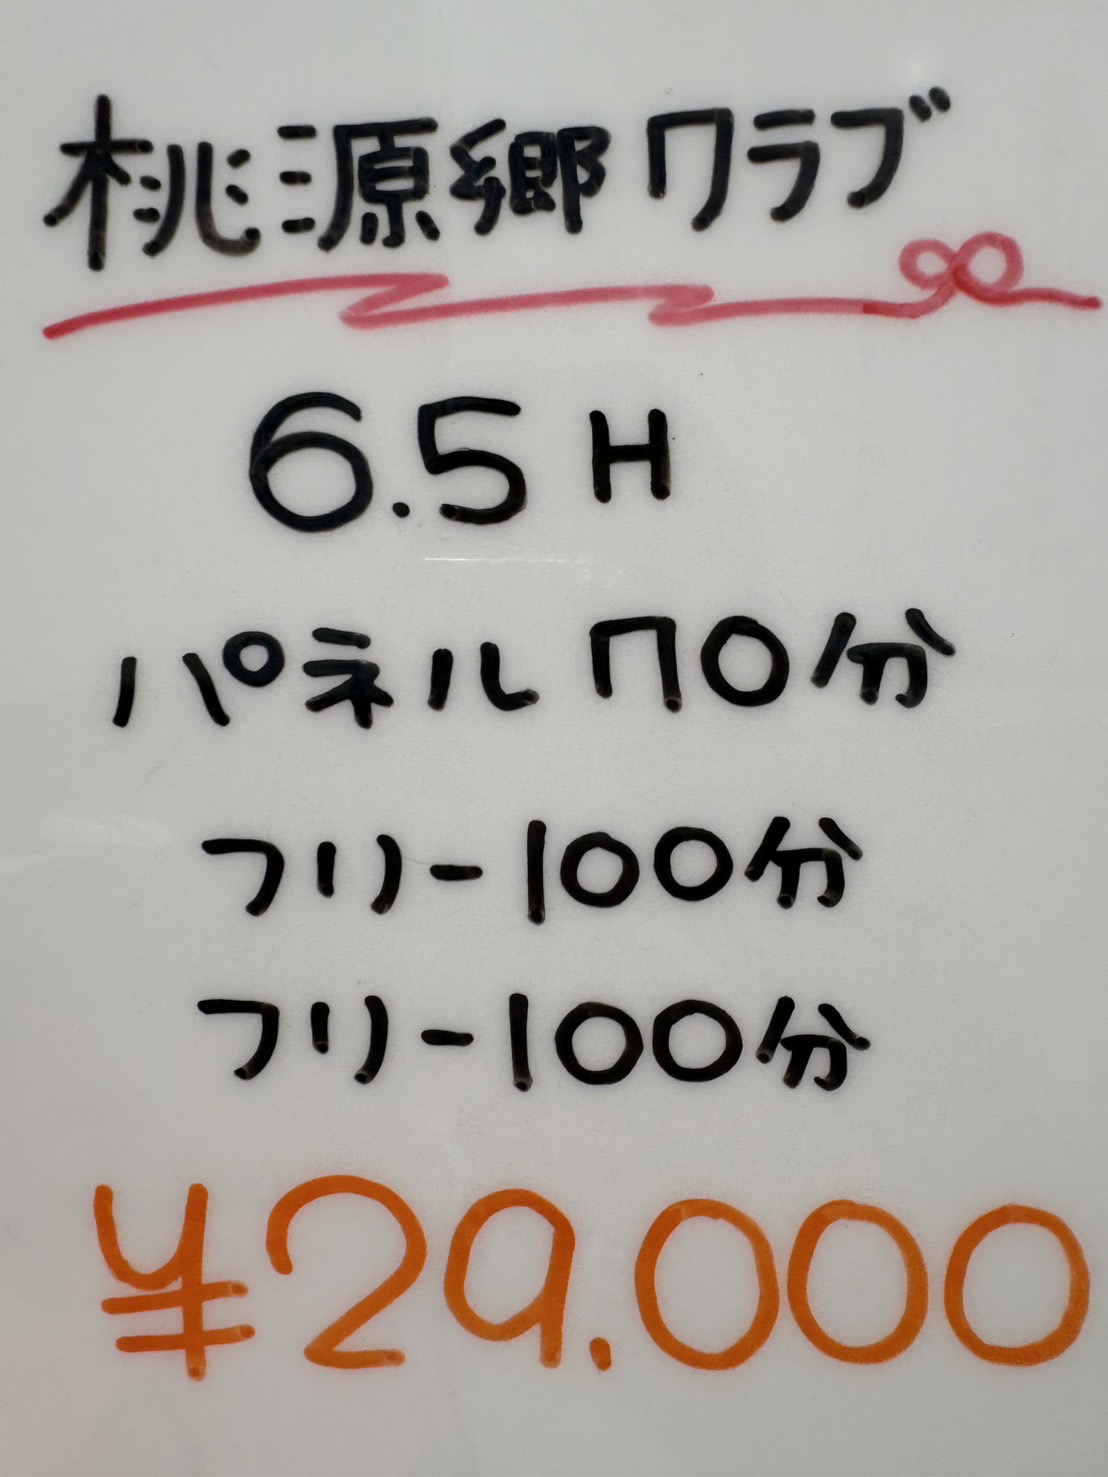 桃源郷クラブ
6.5H
パネル70分
フリー100分
フリー100分
¥29.000